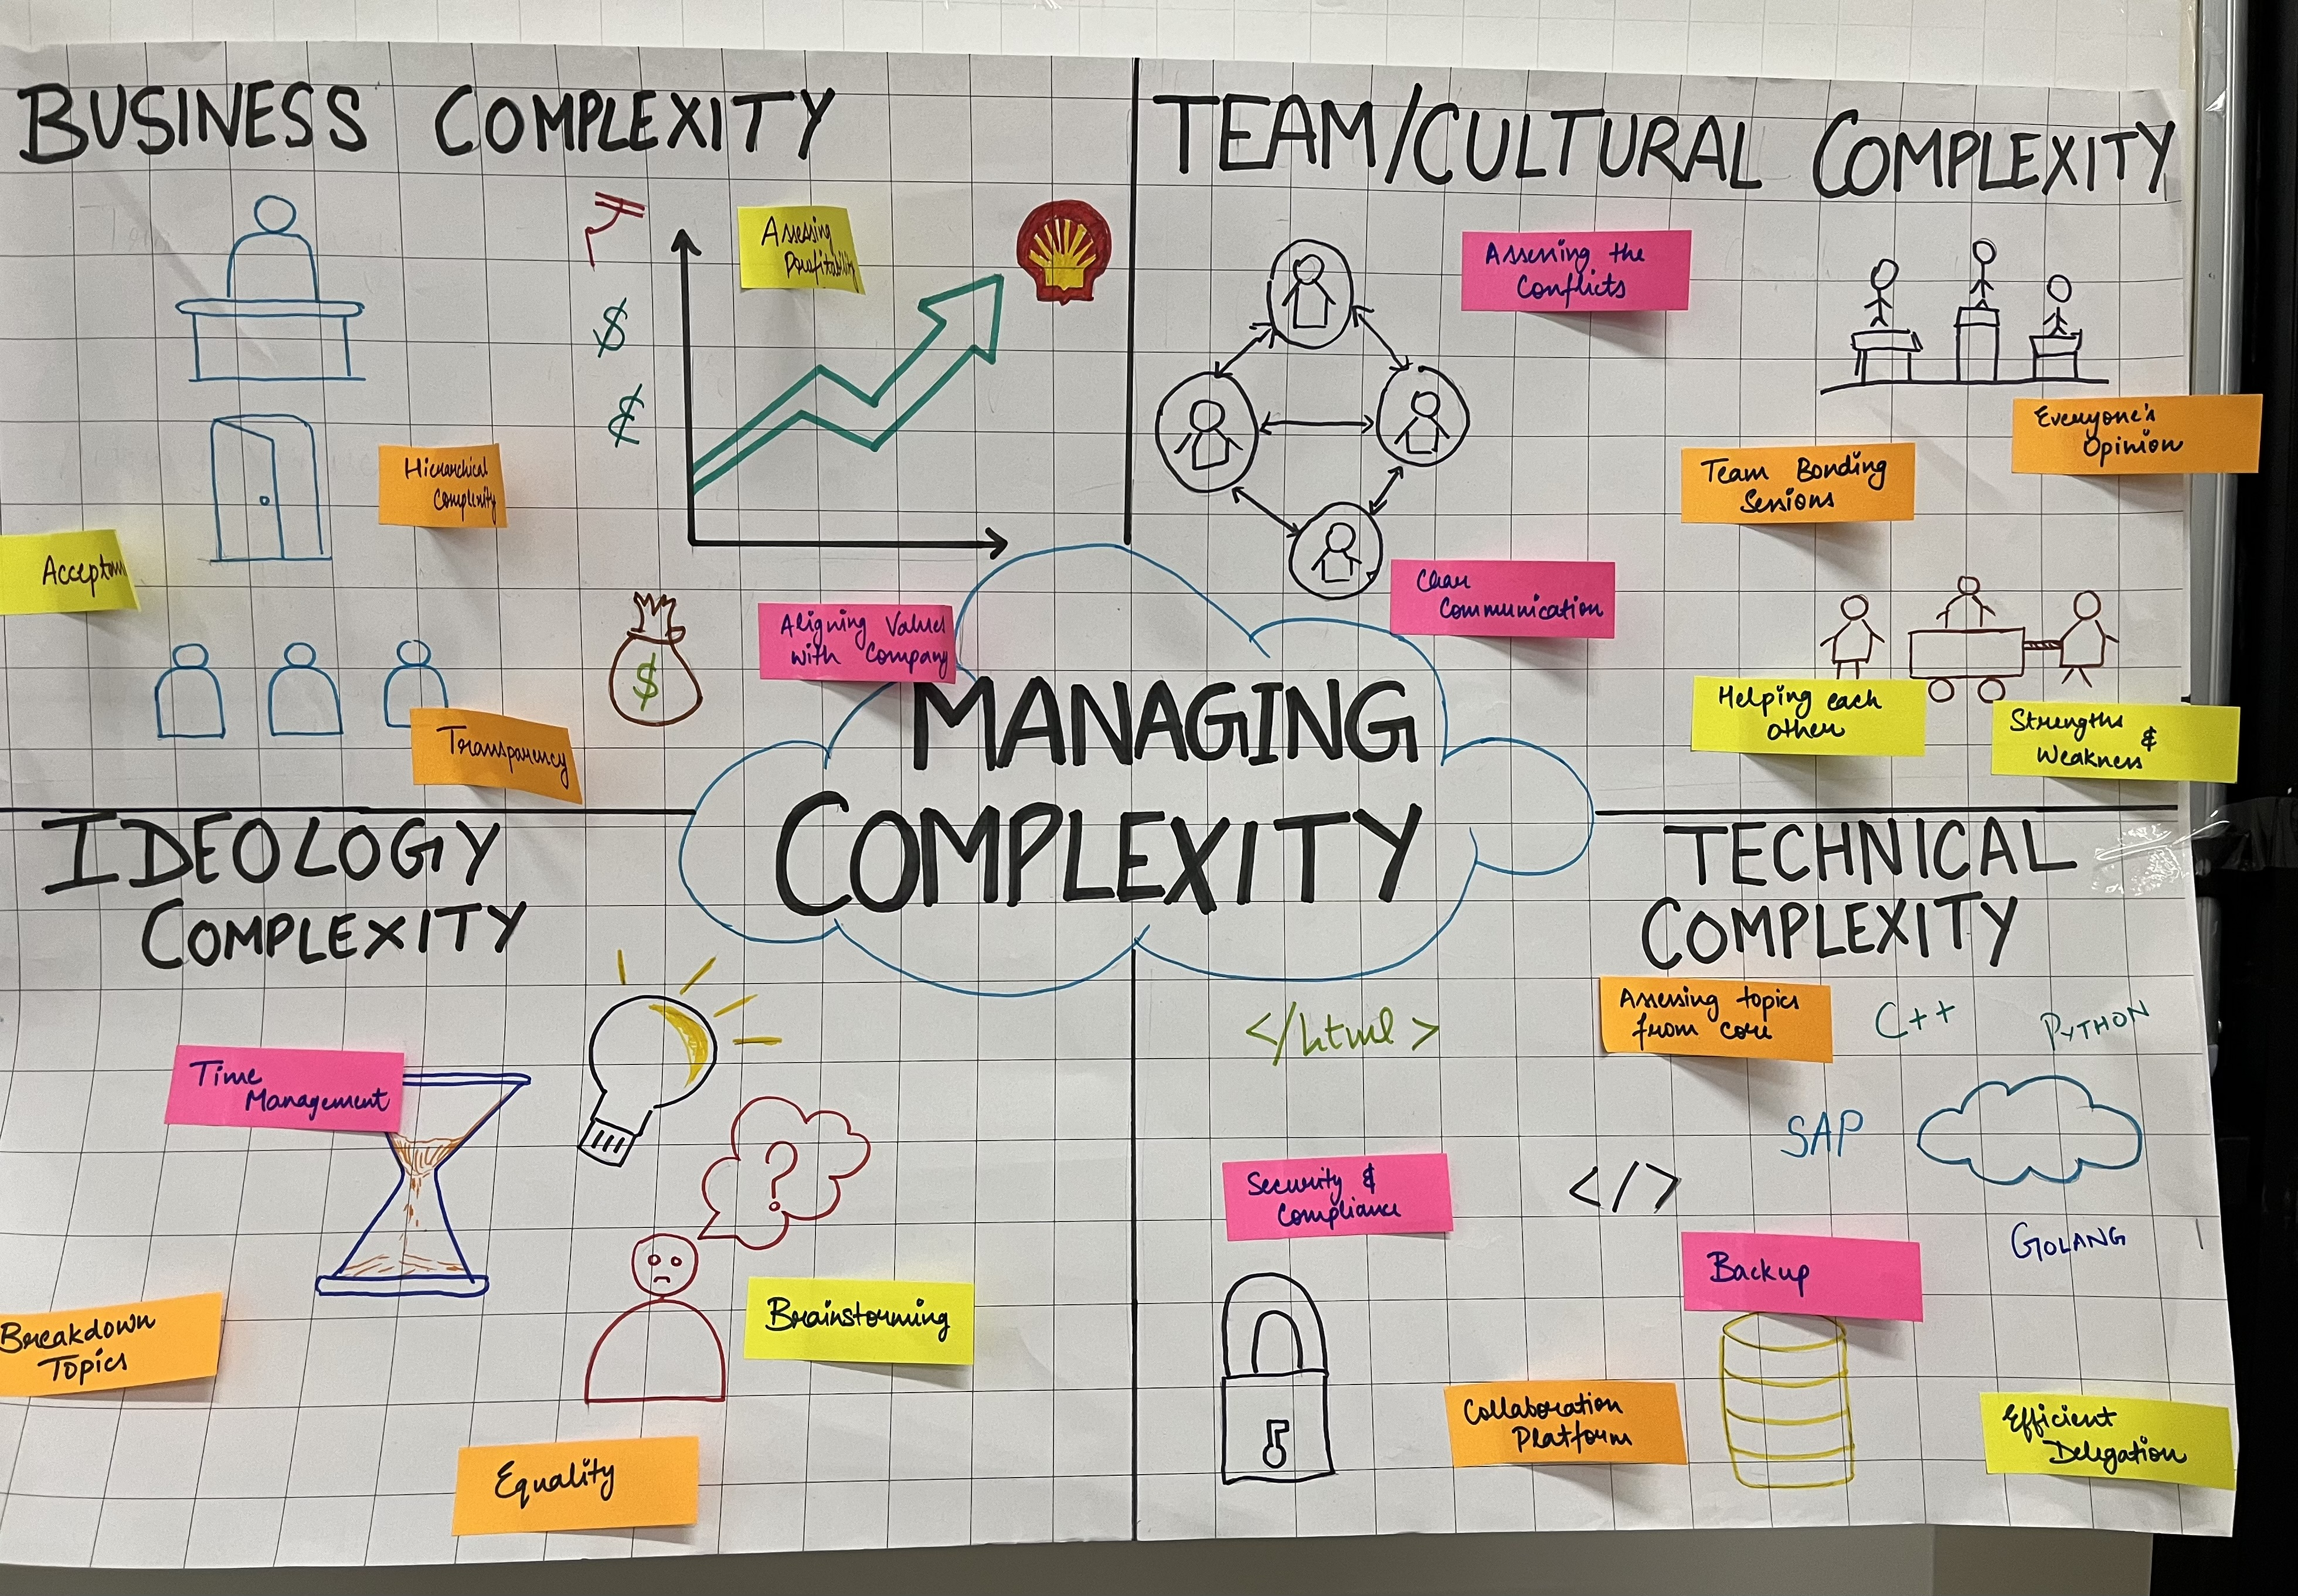 BUSINESS COMPLEXITY
₹
$
¢
Assessing
Profitability
Hierarchical
Complexity
Transparency
$
Aligning Values
with Company
TEAM/CULTURAL COMPLEXITY
Assessing the
Conflicts
Everyone's
Opinion
Team Bonding
Sessions
Clear
Communication
Helping each
other
Strengths &
Weakness
MANAGING
COMPLEXITY
IDEOLOGY
COMPLEXITY
Time
Management
?
Breakdown
Topics
Brainstorming
Equality
TECHNICAL
COMPLEXITY
</html>
Assessing topics
from core
C++
PYTHON
SAP
Security &
Compliance
</>
GOLANG
Backup
Collaboration
Platform
Efficient
Delegation